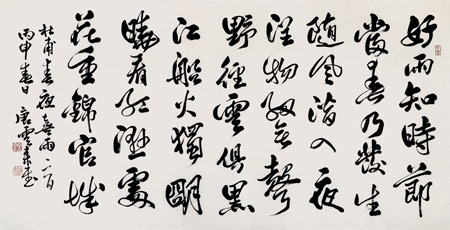 好雨知時節
當春乃發生
隨風潛入夜
潤物細無聲
野徑雲俱黑
江船火獨明
曉看紅濕處
花重錦官城
杜甫春夜喜雨一首
丙申春日唐雲來書